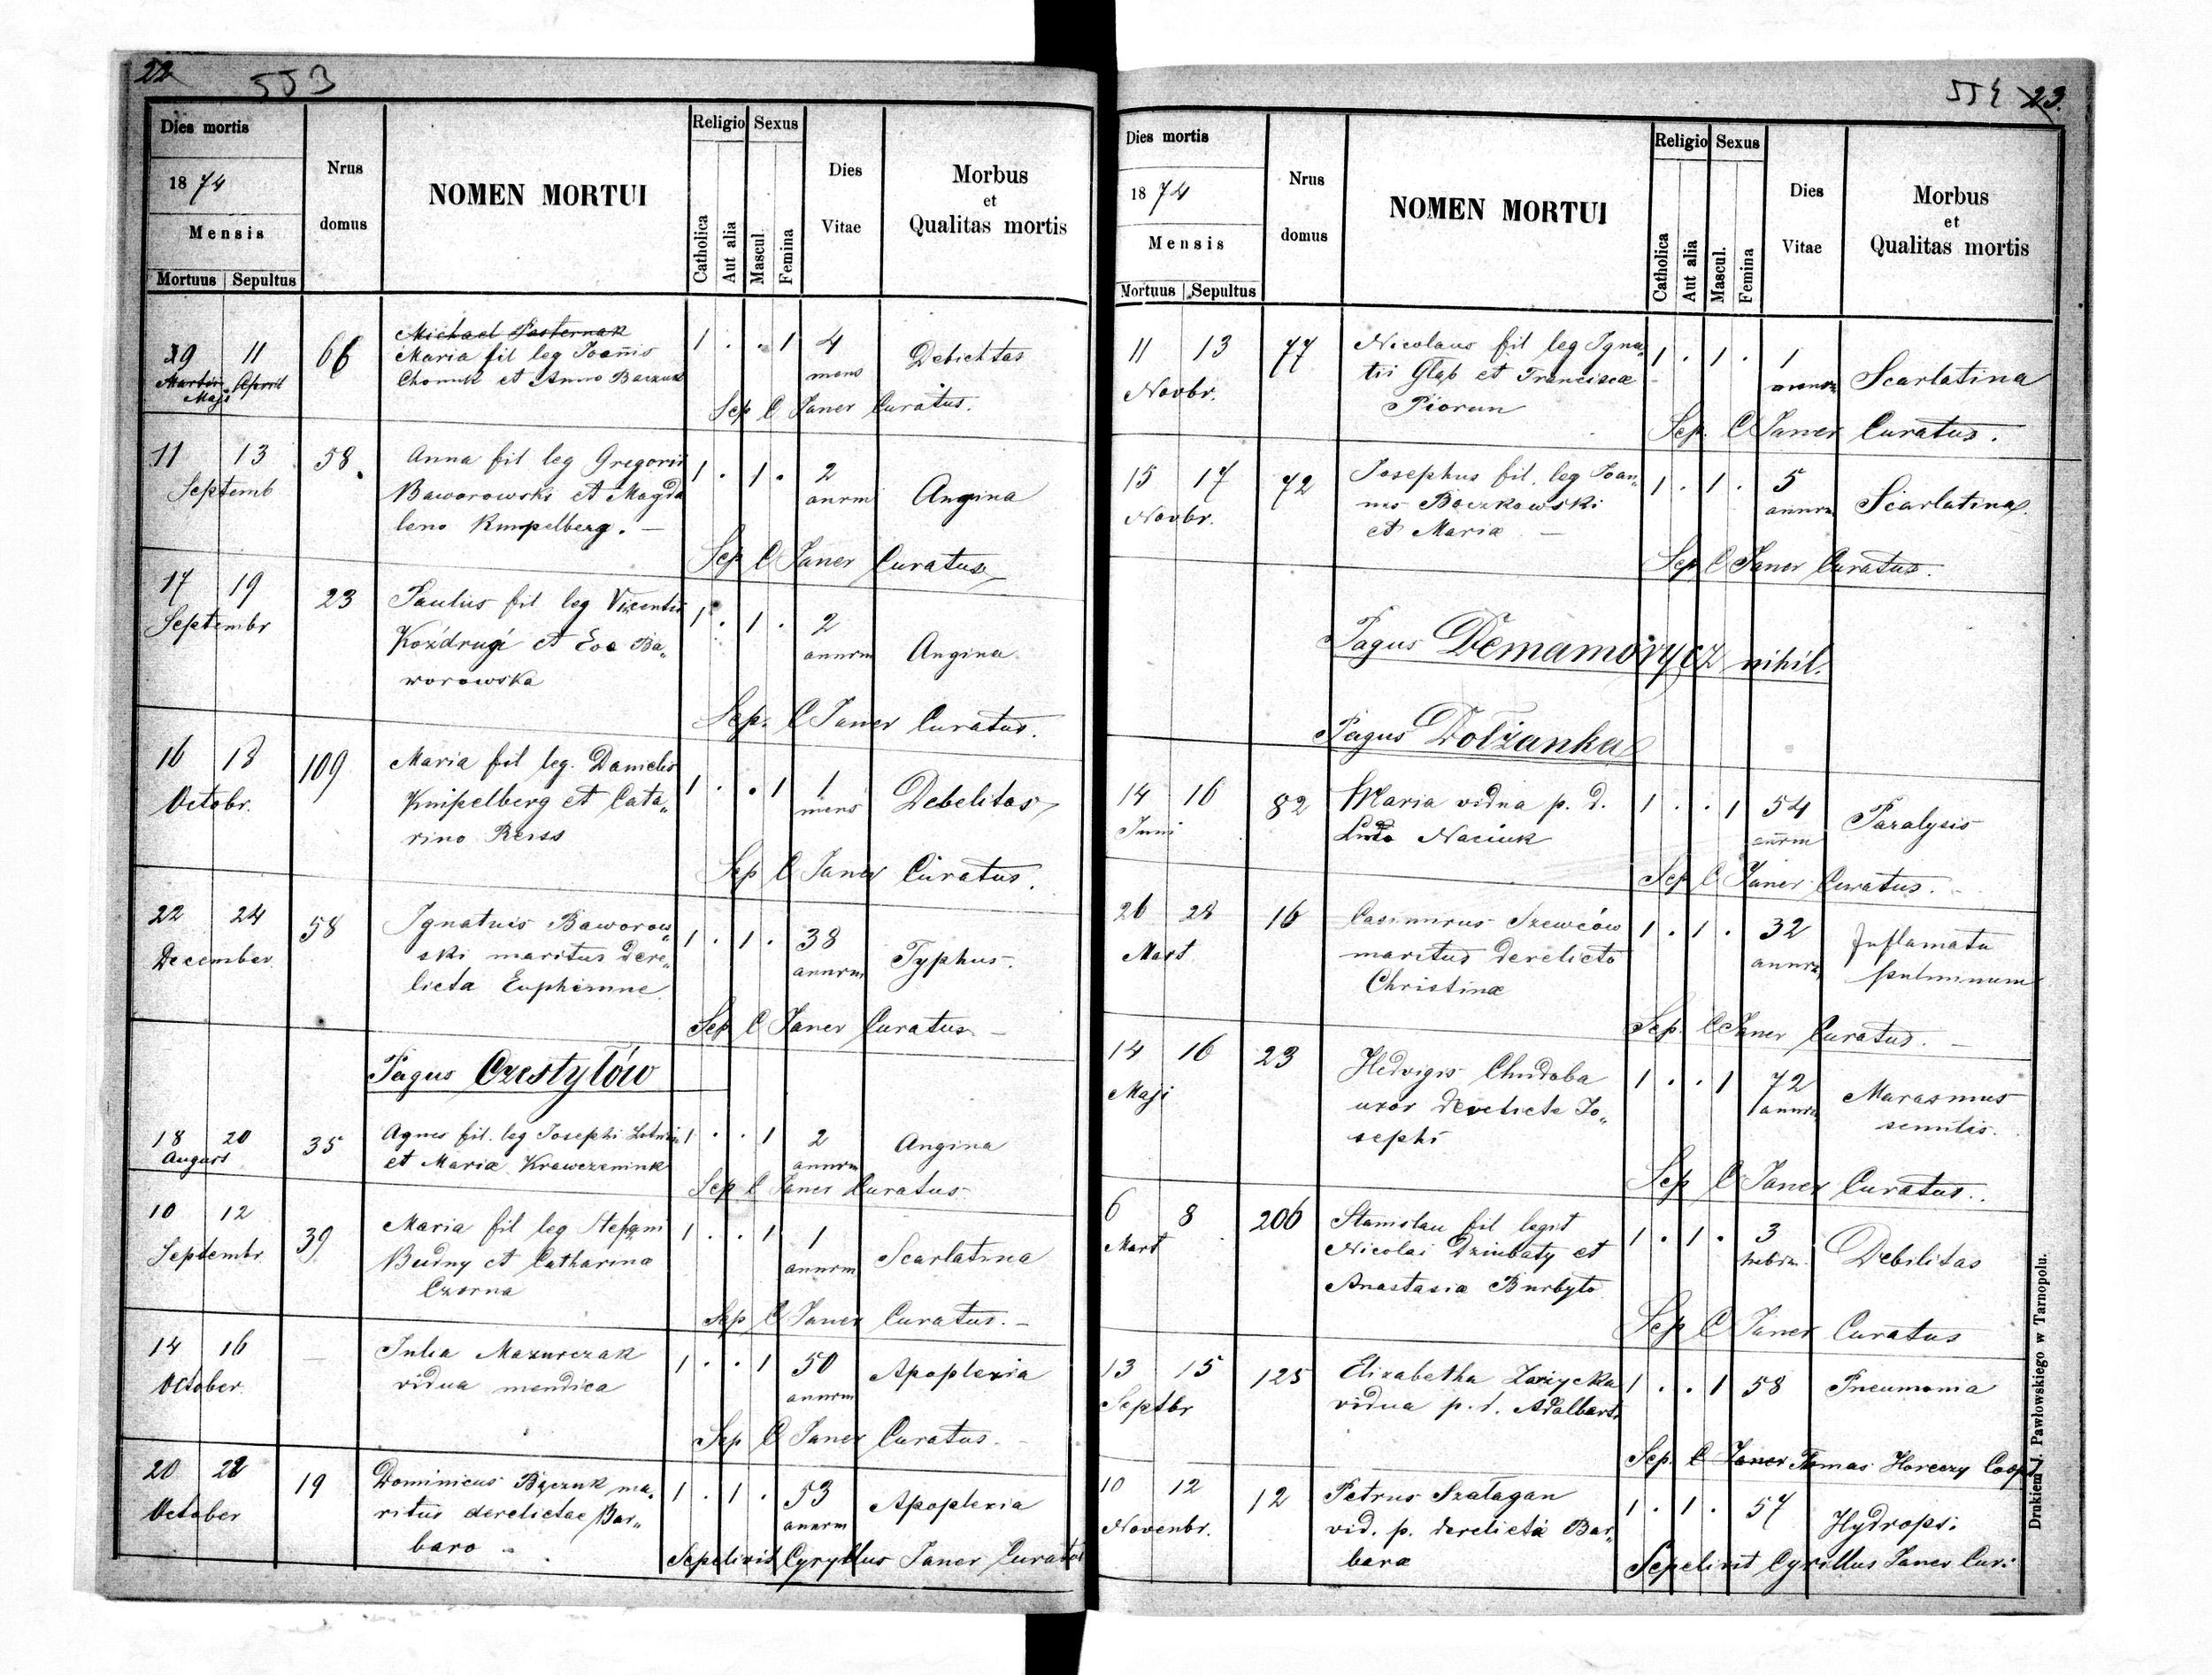 22
553
Dies mortis
1874
Mensis
Mortuus Sepultus
Nrus domus
NOMEN MORTUI
Religio
Catholica
Aut alia
Sexus
Mascul.
Femina
Dies Vitae
Morbus
et
Qualitas mortis
Michael Pasternak
29 11 66 Maria fil leg Joannis 1 . . 1 4 Debilitas
Martii April Chomik et Anna Baczuk mens
Maji
Sep C Janer Curatus.
11 13 58. Anna fil leg Gregorii 1 . 1 . 2 Angina
Septemb Baworowski et Magda annrm
lena Knipelberg. —
Sep C Janer Curatus
17 19 23 Paulus fil leg Vicentii 1 . 1 . 2 Angina
Septembr Koździugi et Eva Ba„ annrm
worowska
Sep. C Janer Curatus.
16 18 109 Maria fil leg. Danielis 1 . . 1 1 Debelitas
Octobr. Knipelberg et Cata„ mens
rina Reiss
Sep C Janer Curatus.
22 24 58 Ignatius Baworow„ 1 . 1 . 38 Typhus.
December ski maritus dere„ annrm
licta Euphemine
Sep C Janer Curatus —
Pagus Czestyłów
18 20 35 Agnes fil. leg Josephi 1 . . 1 2 Angina
August et Maria Krawczeniuk annrm
Sep C Janer Curatus
10 12 39 Maria fil leg Stefani 1 . . 1 1 Scarlatina
Septembr Budny et Catharina annrm
Czorna
Sep C Janer Curatus. —
14 16 — Julia Mazurczak 1 . . 1 50 Apoplexia
October vidua mendica annrm
Sep C Janer Curatus.
20 22 19 Dominicus Bączuk ma„ 1 . 1 . 53 Apoplexia
October ritus derelictae Bar„ annrm
bara
Sepelivit Cyryllus Janer Curatus
554 23.
Dies mortis
1874
Mensis
Mortuus Sepultus
Nrus domus
NOMEN MORTUI
Religio
Catholica
Aut alia
Sexus
Mascul.
Femina
Dies Vitae
Morbus
et
Qualitas mortis
11 13 77 Nicolaus fil leg Igna„ 1 . 1 . 1 Scarlatina
Novbr. tii Głąb et Franciscæ
Piorun
Sep. C Janer Curatus.
15 17 72 Josephus fil. leg Joan„ 1 . 1 . 5 Scarlatina
Novbr. nis Boczkowski annrm
et Maria —
Sep C Janer Curatus.
Pagus Demamorycz nihil.
Pagus Dołżanka
14 16 82 Maria vidua p. d. 1 . . 1 54 Paralysis
Juni Naciuk
Sep C Janer Curatus.
26 28 16 Casimirus Szewców 1 . 1 . 32 Inflamatu
Mart maritus derelicto annrm pulmunum
Christinæ
Sep. C Janer Curatus. —
14 16 23 Hedvigis Chudoba 1 . . 1 72 Marasmus
Maji uxor derelicta Jo„ annrm senilis.
sephi
Sep C Janer Curatus.
6 8 206 Stanislau fil legit 1 . 1 . 3 Debilitas
Mart Nicolai Dziubaty et
Anastasia Burbyto
Sep C Janer Curatus
13 15 125 Elizabetha Zarzycka 1 . . 1 58 Pneumonia
Septbr vidua p. d. Adalberti
Sep. C Janer Tomas Horeczy Coop
10 12 12 Petrus Szatagan 1 . 1 . 57 Hydrops.
Novenbr. vid. p. derelicta Bar„
bara
Sepelivit Cyrillus Janer Cur.
Drukiem J. Pawłowskiego w Tarnopolu.